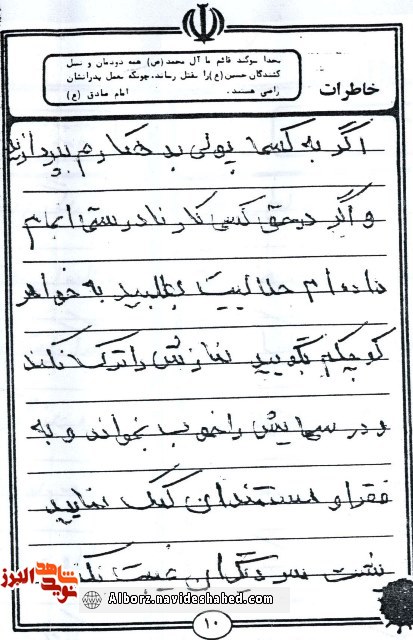 بخدا سوگند قائم ما آل محمد(ص) همه دودمان و نسل
کنندگان حسین(ع) را بقتل رساند، چونکه بعمل پدرانشان
راضی هستند. امام صادق (ع)
خاطرات
اگر به کسی پولی بدهکارم بپردازید
و اگر در حق کسی کار نادرستی انجام
داده‌ام حلالیت بطلبید به خواهر
کوچکم بگویید نمازش را ترک نکند
و درسهایش را خوب بخواند و به
فقرا و مستمندان کمک نمایید
پشت سر دیگران غیبت
نوید شاهد البرز
Alborz.navideshahed.com
۱۰